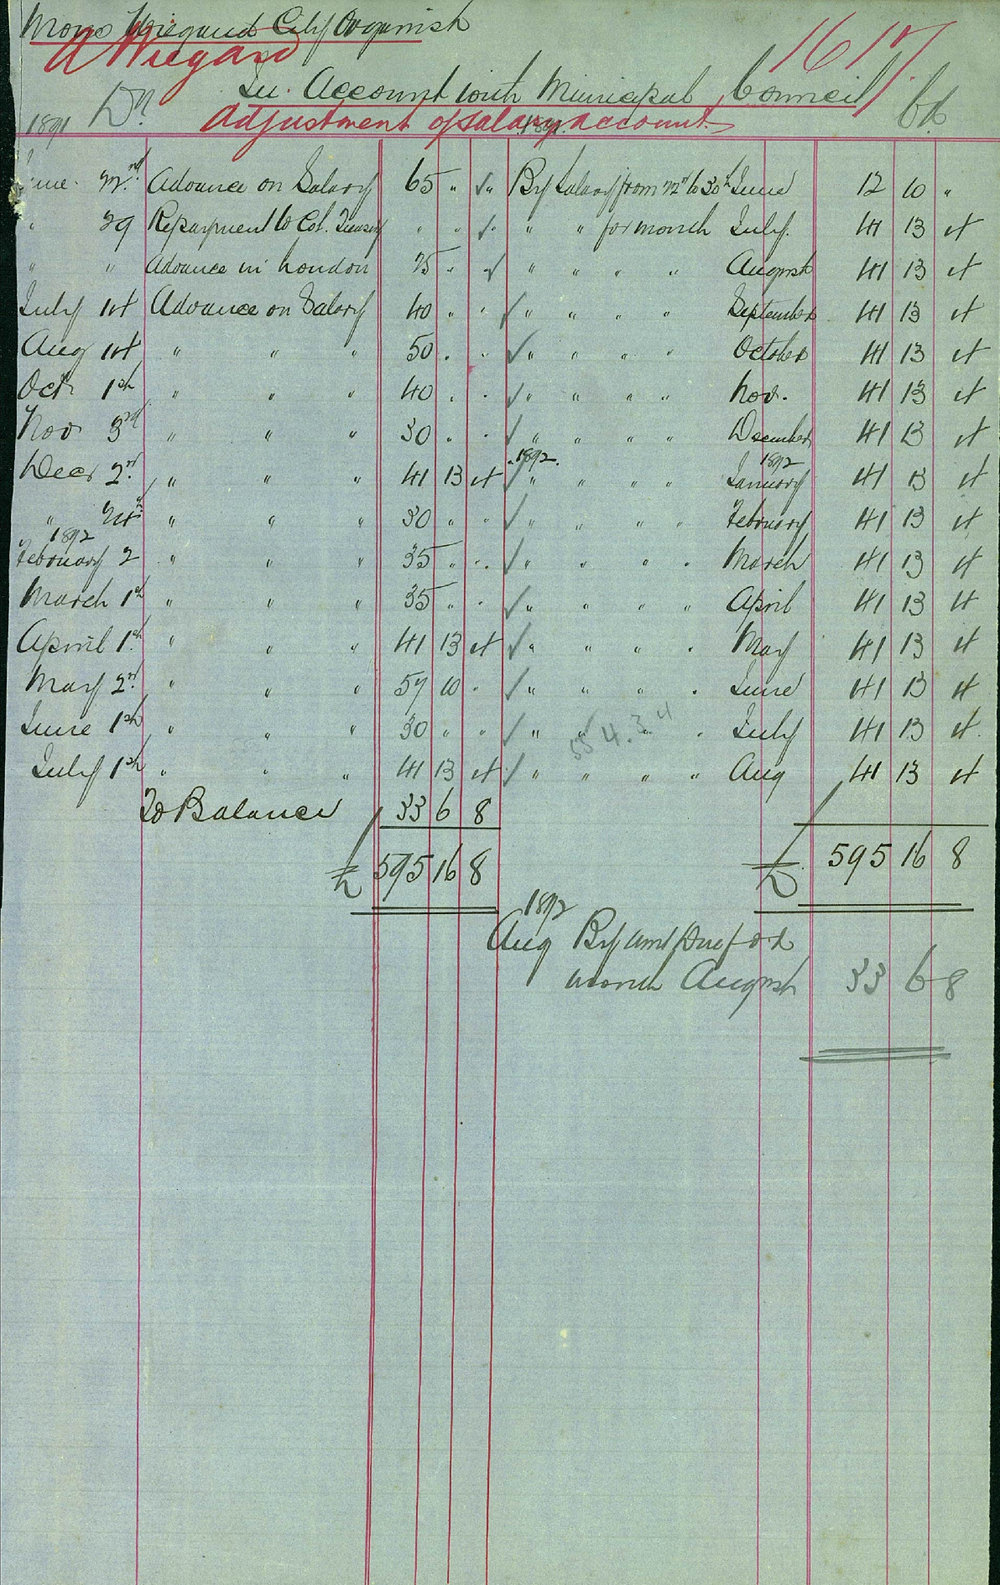 Mons Wiegand City Organist
A Wiegand
1617
In Account with Municipal Council
Dr
Adjustment of Salary Account
1891
1891
June 22nd Advance on Salary 65 " " By Salary from 22nd to 30th June 12 10 "
" 29 Repayment to Col. Treasy " " " " " for month July 41 13 4
" " Advance in London 25 " " " " " " August 41 13 4
July 1st Advance on Salary 40 " " " " " " September 41 13 4
Aug 1st " " " 50 " " " " " " October 41 13 4
Oct 1st " " " 40 " " " " " " Nov. 41 13 4
Nov 3rd " " " 30 " " " " " " December 41 13 4
1892 1892
Decr 2nd " " " 41 13 4 " " " " January 41 13 4
" 24th " " " 30 " " " " " " February 41 13 4
1892
February 2 " " " 35 " " " " " " March 41 13 4
March 1st " " " 35 " " " " " " April 41 13 4
April 1st " " " 41 13 4 " " " " May 41 13 4
May 2nd " " " 57 10 " " " " " June 41 13 4
June 1st " " " 30 " " " " " " July 41 13 4
554.3.4
July 1st " " " 41 13 4 " " " " Aug 41 13 4
To Balance 33 6 8
£ 595 16 8 £ 595 16 8
1892
Aug By amt
month August 33 6 8